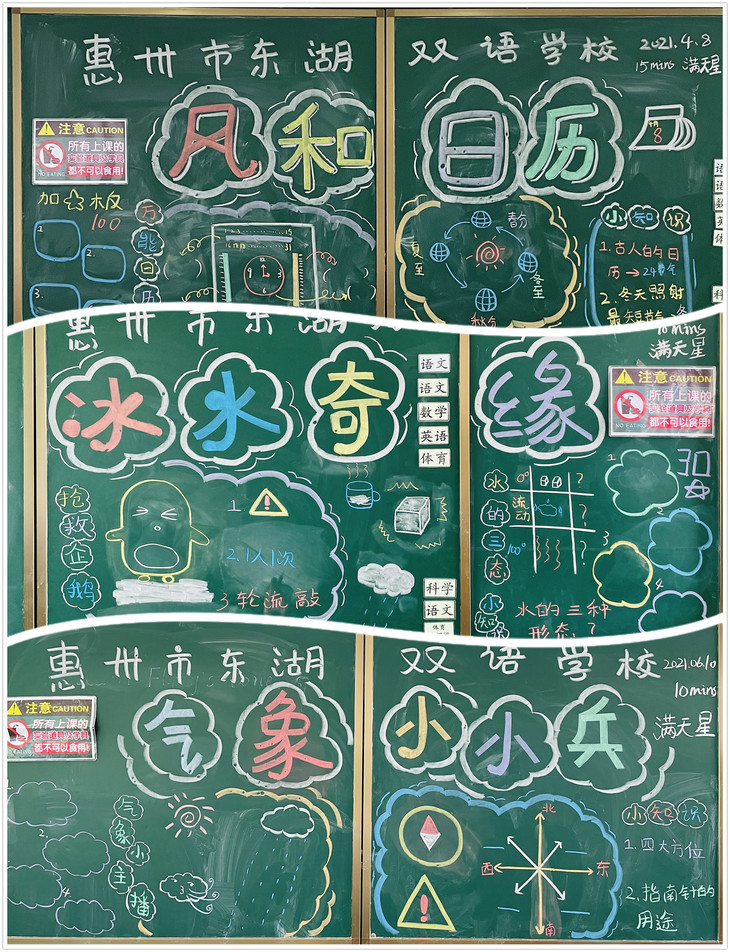 惠州市东湖
双语学校
2021.4.8
15mins 满天星
风和
日历
注意 CAUTION
所有上课的
实验道具及学具
都不可以食用!
NO EATING
加☆板
100
万能日历
15
31
9 3
6
春分
夏至
冬至
秋分
十月
8
小知识
1.古人的日
历→24节气
2.冬天照射
最短
惠州市东湖
10mins
满天星
冰水奇
缘
语文
语文
数学
英语
体育
科学
语文
体育
注意 CAUTION
所有上课的
实验道具及学具
都不可以食用!
NO EATING
抢救企鹅
1
2.1人1次
3.轮流敲
水的三态
0°
流动
100°
?
?
?
1
2
3
4
加☆
小知识
水的三种
形态?
惠州市东湖
双语学校
2021.06.10
10mins
满天星
注意 CAUTION
所有上课的
实验道具及学具
都不可以食用!
气象
小小兵
气象小主播
2.
4
北
西 东
南
小知识
1.四大方位
2.指南针的
用途